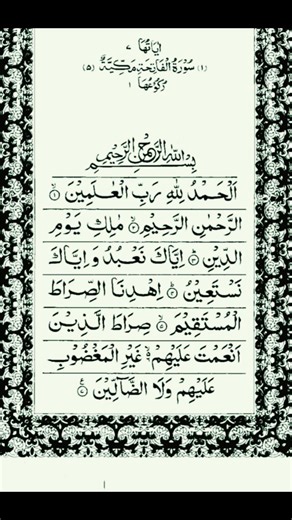 اٰيَاتُهَا ٧
(١) سُوْرَةُ الْفَاتِحَةِ مَكِّيَّةٌ (٥)
رُكُوْعُهَا ١
بِسْمِ اللّٰهِ الرَّحْمٰنِ الرَّحِيْمِ
اَلْحَمْدُ لِلّٰهِ رَبِّ الْعٰلَمِيْنَ ۙ﴿١﴾
الرَّحْمٰنِ الرَّحِيْمِ ۙ﴿٢﴾ مٰلِكِ يَوْمِ
الدِّيْنِ ؕ﴿٣﴾ اِيَّاكَ نَعْبُدُ وَ اِيَّاكَ
نَسْتَعِيْنُ ؕ﴿٤﴾ اِهْدِنَا الصِّرَاطَ
الْمُسْتَقِيْمَ ۙ﴿٥﴾ صِرَاطَ الَّذِيْنَ
اَنْعَمْتَ عَلَيْهِمْ ۙ۬﴿٦﴾ غَيْرِ الْمَغْضُوْبِ
عَلَيْهِمْ وَلَا الضَّآلِّيْنَ ﴿٧﴾